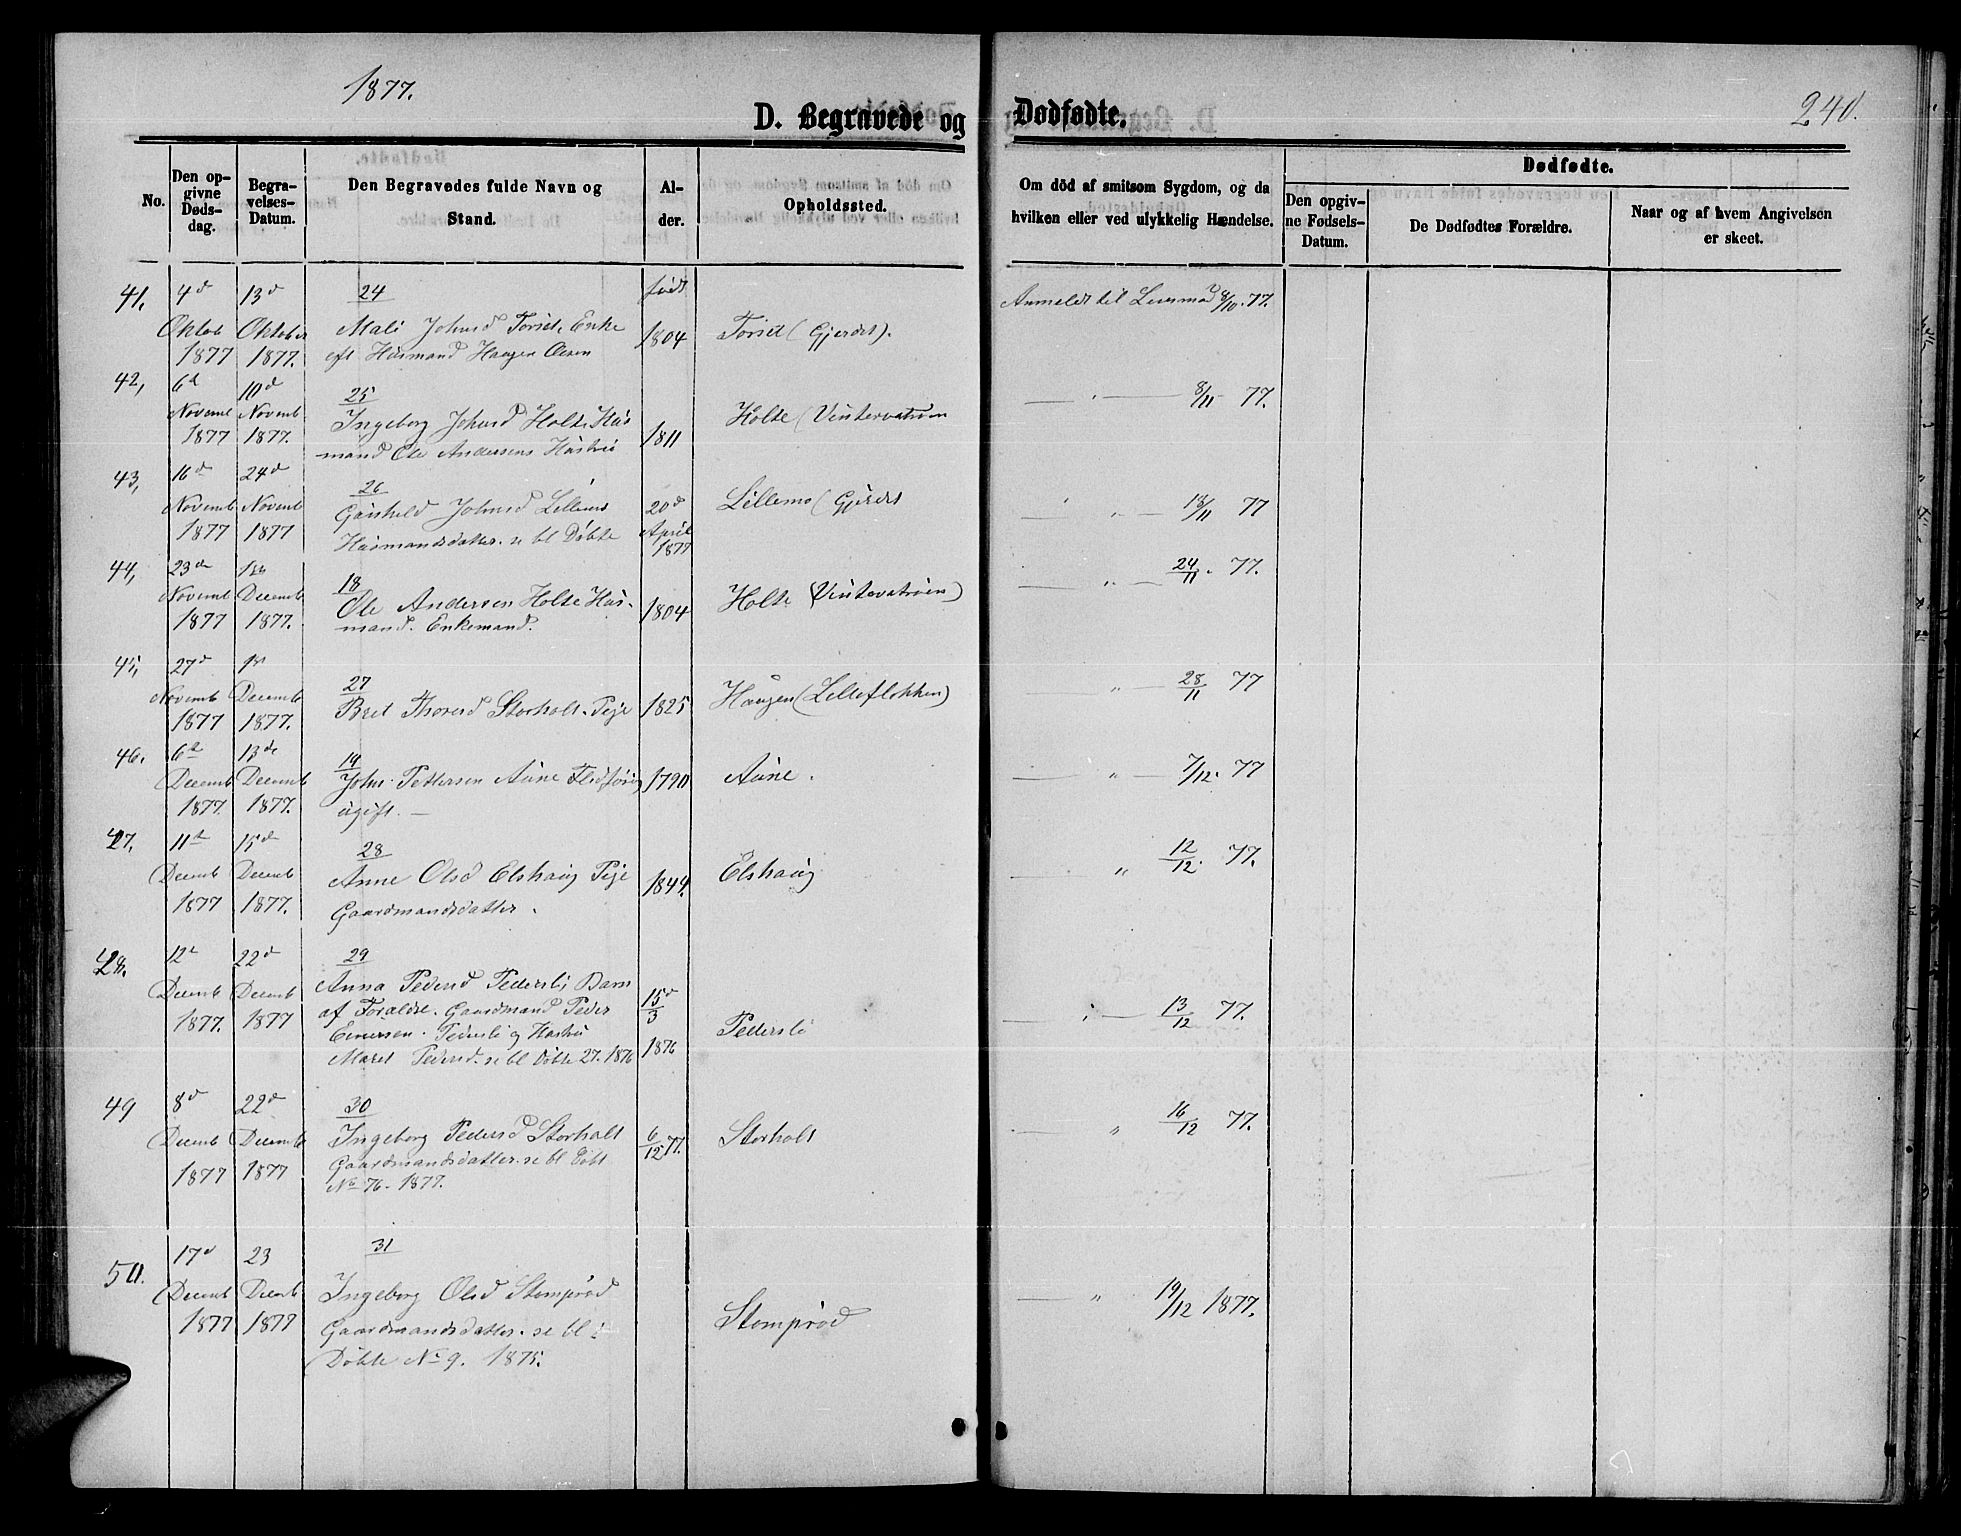 1877.
240.
D. Begravede og Dødfødte.
No.
Den op-
givne
Døds-
dag.
Begra-
velses-
Datum.
Den Begravedes fulde Navn og
Stand.
Al-
der.
Opholdssted.
Om död af smitsom Sygdom, og da
hvilken eller ved ulykkelig Hændelse.
Dødfødte.
Den opgiv-
ne Fødsels-
Datum.
De Dødfødtes Forældre.
Naar og af hvem Angivelsen
er skeet.
41, 4d 13d 24 født Anmeldt til 8/10. 77.
Oktob Oktober Mali Johnsd Torset. Enke 1804 Torset (Gjerdet).
1877 1877. eft Husmand Haagen Olsen
42, 6d 10d 25 — " — 8/11 - 77.
Novemb Novemb Ingeborg Johnsd Holte Hus 1811 Holte (Vintervatnøen
1877 1877. mand Ole Andersens Hustru
43, 16d 24d 26 — " — 18/11 77
Novemb Novemb Johnsd Lillemo 20d Lillemo (Gjerdet
1877 1877 Husmandsdatter. se bl Døbte April
1877
44, 23de 1ste 18 — " — 24/11. 77.
Novemb Decemb Ole Andersen Holte Hus- 1804 Holte (Vintervatnøen)
1877 1877. mand. Enkemand.
45, 27d 1st 27 " — 28/11 77
Novemb Decemb Beret Thoresd Storholt. Pige 1825 Haugen (Lilleflokken)
1877 1877.
46. 6d 13de 19 — " — 7/12. 77
Decemb Decemb John Pettersen Aune 1790 Aune.
1877. 1877. ugift. —
47. 11d 15d 28 — " 12/12. 77.
Decemb Decemb Anne Olsd Elshaug Pige 1844. Elshaug
1877 1877. Gaardmandsdatter.
48. 12d 22d 29 — " — 13/12 77.
Decemb Decemb Anna Pedersd Pedersli Barn
af Forældre. Gaardmand Peder 15d/3
1877. 1877 Pedersli og Hustru Pedersli
Maret Pedersd. se bl Døbte 27. 1876 1876
49 8d 22d 30 — " 16/12 77.
Decemb Decemb Ingeborg Pedersd Storholt 6/12 77. Storholt
1877 1877 Gaardmandsdatter. se bl Døbt
No 76. 1877.
50. 17d 23 31
Decemb Decemb Ingeborg Olsd Stomprød — " 19/12 1877.
1877 1877 Gaardmandsdatter. se bl. Stomprød
Døbte No 9. 1875.